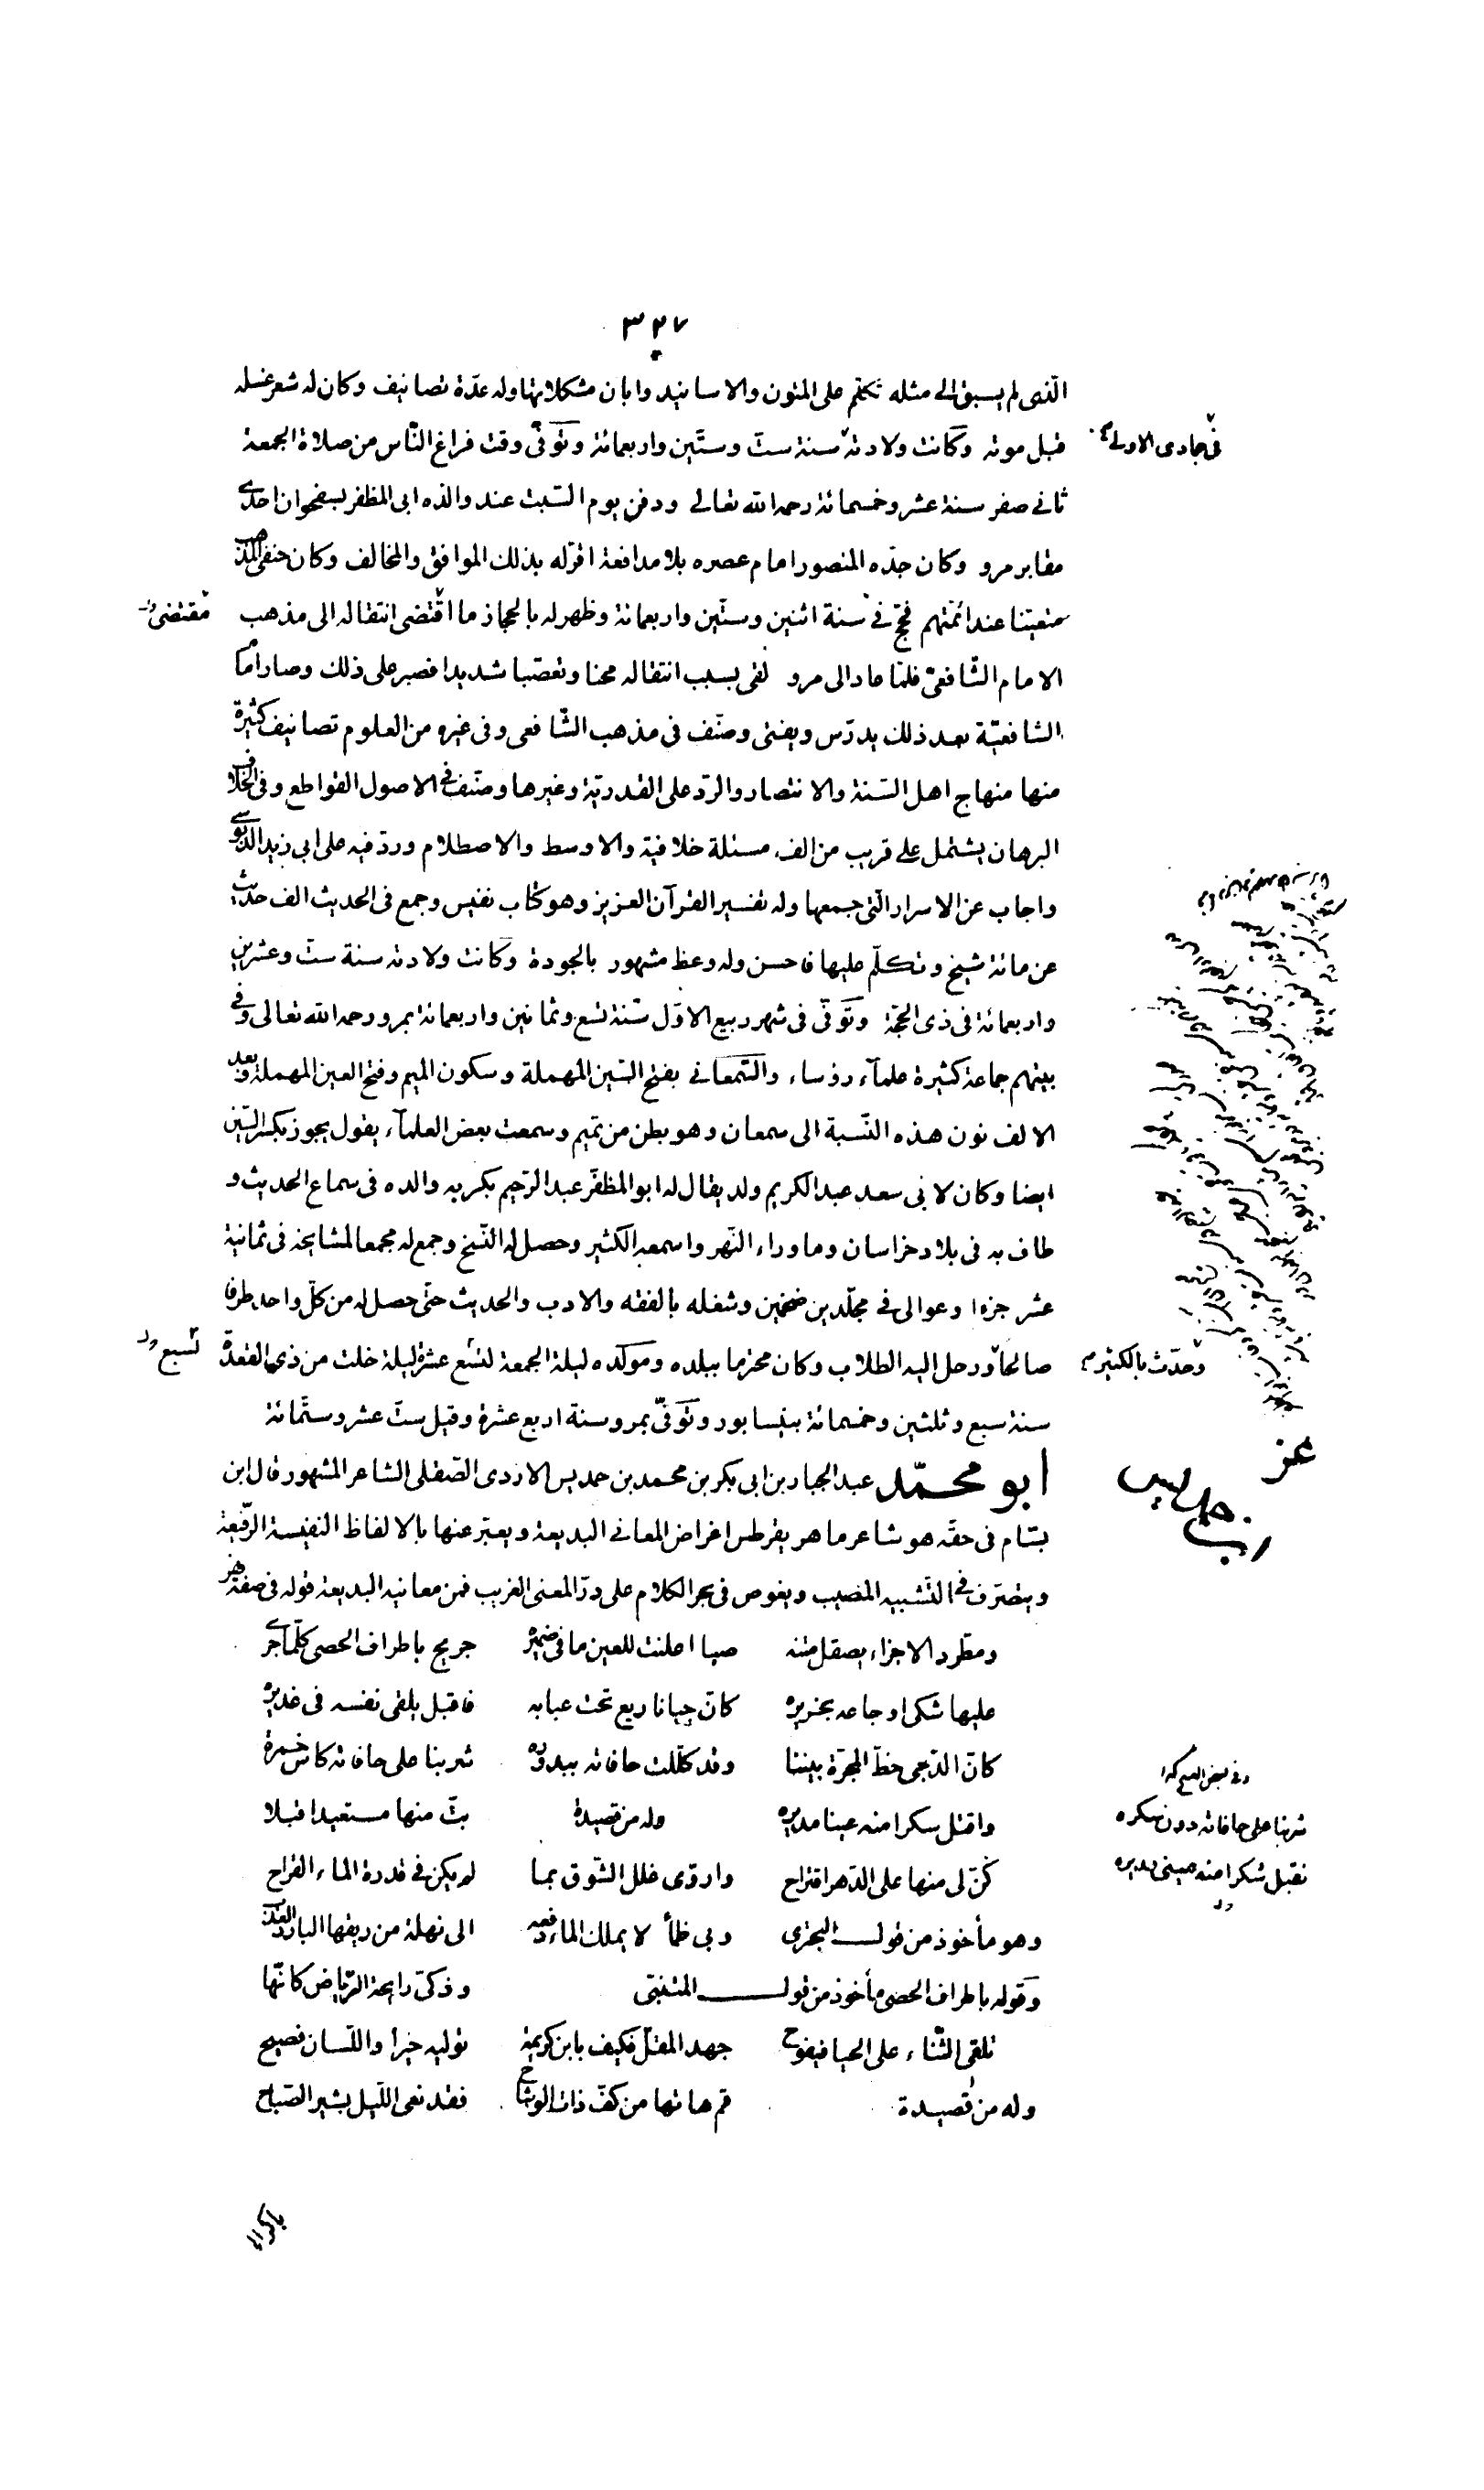 ٣٢٧
الّذى لم يسبق الى مثله تكلّم على المتون والاسانيد وابان مشكلاتها وله عدّة تصانيف وكان له شعر غسله
قبل موته وكانت ولادته سنة ستّ وستّين واربعمائة وتوفّى وقت فراغ النّاس من صلاة الجمعة
فى جمادى الاولى
ثانى صفر سنة عشر وخمسمائة رحمه الله تعالى ودفن يوم السّبت عند والده ابى المظفر بسفحوان احدى
مقابر مرو وكان جدّه المنصور امام عصره بلا مدافعة اقرّله بذلك الموافق والمخالف وكان حنفى المذهب
متعيّنا عند ائمّتهم فحجّ فى سنة اثنين وستّين واربعمائة وظهر له بالحجاز ما اقتضى انتقاله الى مذهب
مقتضى
الامام الشّافعىّ فلمّا عاد الى مرو لقى بسبب انتقاله محنا وتعصّبا شديدا فصبر على ذلك وصار امام
الشافعيّة بعد ذلك يدرّس ويفتى وصنّف فى مذهب الشّافعى وفى غيره من العلوم تصانيف كثيرة
منها منهاج اهل السّنة والانتصار والردّ على القدريّة وغيرها وصنّف فى الاصول القواطع وفى الخلاف
البرهان يشتمل على قريب من الف مسئلة خلافية والاوسط والاصطلام وردّ فيه على ابى زيد الدبوسى
واجاب عن الاسرار الّتى جمعها وله تفسير القرآن العزيز وهو كتاب نفيس وجمع فى الحديث الف حديث
عن مائة شيخ وتكلّم عليها فاحسن وله وعظ مشهور بالجودة وكانت ولادته سنة ستّ وعشرين
واربعمائة فى ذى الحجّة وتوفّى فى شهر ربيع الاوّل سنة تسع وثمانين واربعمائة بمرو رحمه الله تعالى وفى
بيتهم جماعة كثيرة علمآء رؤساء والسّمعانى بفتح السّين المهملة وسكون الميم وفتح العين المهملة وبعد
الالف نون هذه النّسبة الى سمعان وهو بطن من تميم وسمعت بعض العلمآء يقول يجوز بكسر السّين
ايضا وكان لابى سعد عبد الكريم ولد يقال له ابو المظفّر عبد الرّحيم بكر به والده فى سماع الحديث و
طاف به فى بلاد خراسان وماوراء النّهر واسمعه الكثير وحصل له النّسخ وجمع له مجمعا لمشايخه فى ثمانية
عشر جزءا وعوالى فى مجلّدين ضخمين وشغله بالفقه والادب والحديث حتّى حصل له من كلّ واحد طرفا
صالحا ورحل اليه الطلاب وكان محترما ببلده ومولده ليلة الجمعة لتسع عشرة ليلة خلت من ذى القعدة
وحدّث بالكثير
تسبع
سنة سبع وثلثين وخمسمائة بنيسابور وتوفّى بمرو سنة اربع عشرة وقيل ستّ عشر وستّمائة
أبو محمّد عبد الجبار بن ابى بكر بن محمد بن حمديس الازدى الصّقلى الشاعر المشهور قال ابن
ابن حمديس
بسّام فى حقّه هو شاعر ماهر يقرطس اغراض المعانى البديعة ويعبّر عنها بالالفاظ النفيسة الرّفيعة
ويتصرّف فى التّشبيه المصيب ويغوص فى بحر الكلام على درّ المعنى الغريب فمن معانيه البديعة قوله فى صفة نهر
ومطّرد الاجزاء يصقل متنه صبا اعلنت للعين ما فى ضميره جريح باطراف الحصى كلّما جرى
عليها شكى اوجاعه بخريره كانّ حبابا ريع تحت عبابه فاقبل يلقى نفسه فى غديره
كانّ الدّجى خطّ المجرّة بيننا وقد كلّلت حافاته ببدوره شربنا على حافاته كاس خمرة
وفى بعض النسخ كذا
واقتل سكرا منه عينا مديره وله من قصيدة بتّ منها مستعيدا قبلا
شربنا على حافاته دون سكره
كنّ لى منها على الدّهر اقتراح واروّى غلل الشّوق بما لم يكن فى قدرة الماء القراح
نقبل شكرا منه عينى مديره
وهو مأخوذ من قول البحترى وبى ظمأ لا يملك الماء دفعه الى نهلة من ريقها البارد العذب
وقوله باطراف الحصى مأخوذ من قول المتنبّى وذكىّ رايحة الرّياض كانّها
تلقى الثّناء على الحيا فيفوح جهد المقلّ فكيف بابن كريمة توليه خيرا واللّسان فصيح
وله من قصيدة قم هاتها من كفّ ذات الوشاح فقد نعى اللّيل بشير الصّباح
باكر